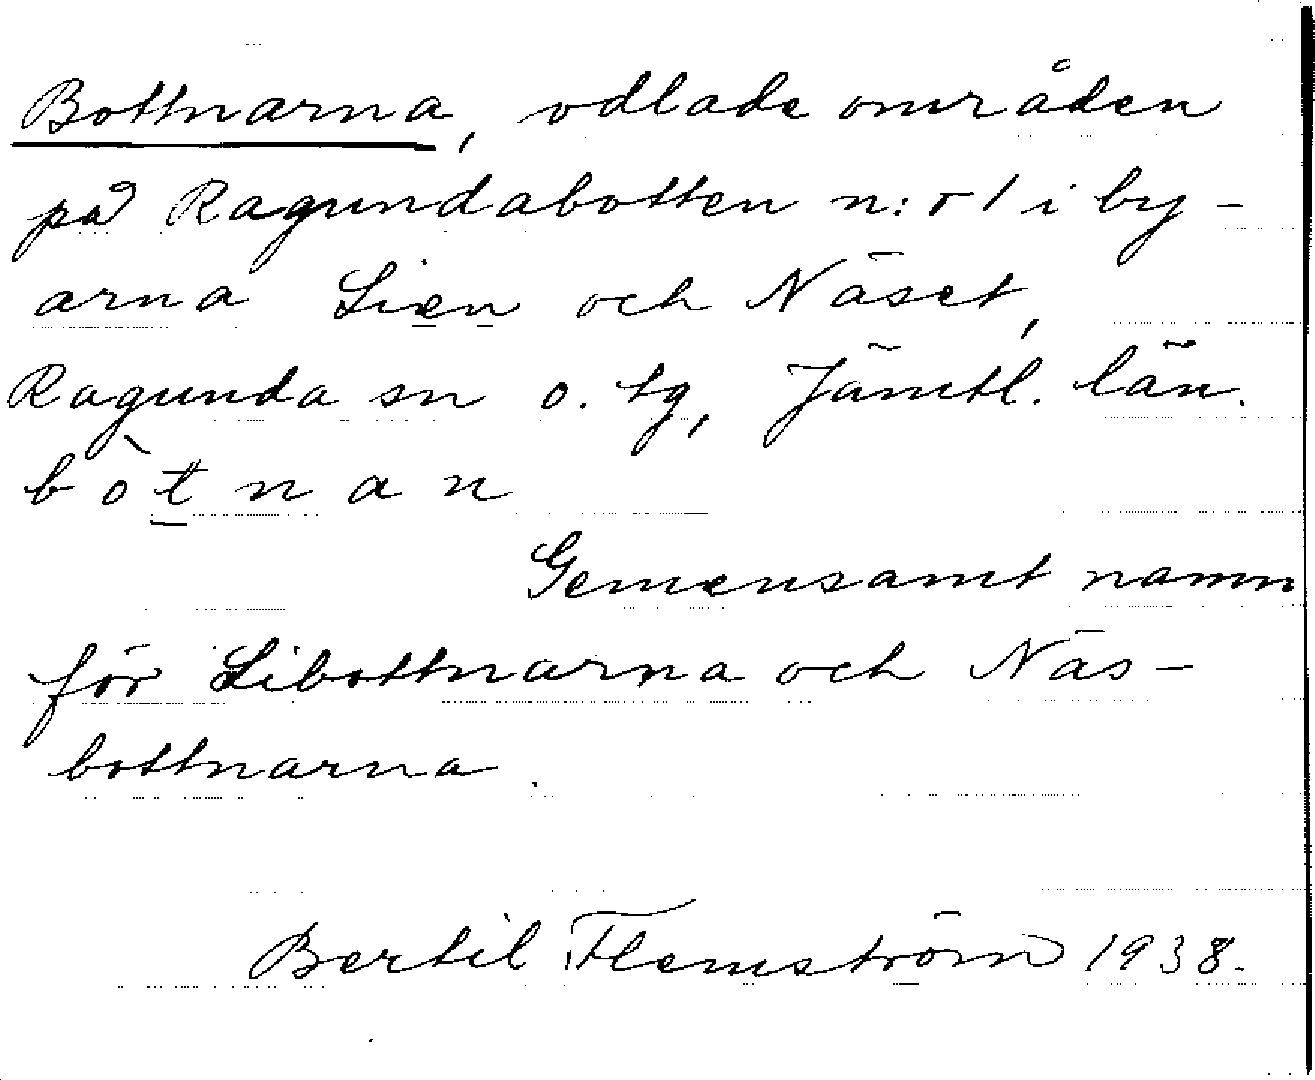 Bottnarna, odlade områden
på Ragundabotten n:r 1 i by-
arna Lien och Näset,
Ragunda sn o. tg, Jämtl. län.
bòt̲nan
Gemensamt namn
för Libottnarna och Näs-
bottnarna.
Bertil Flemström 1938.